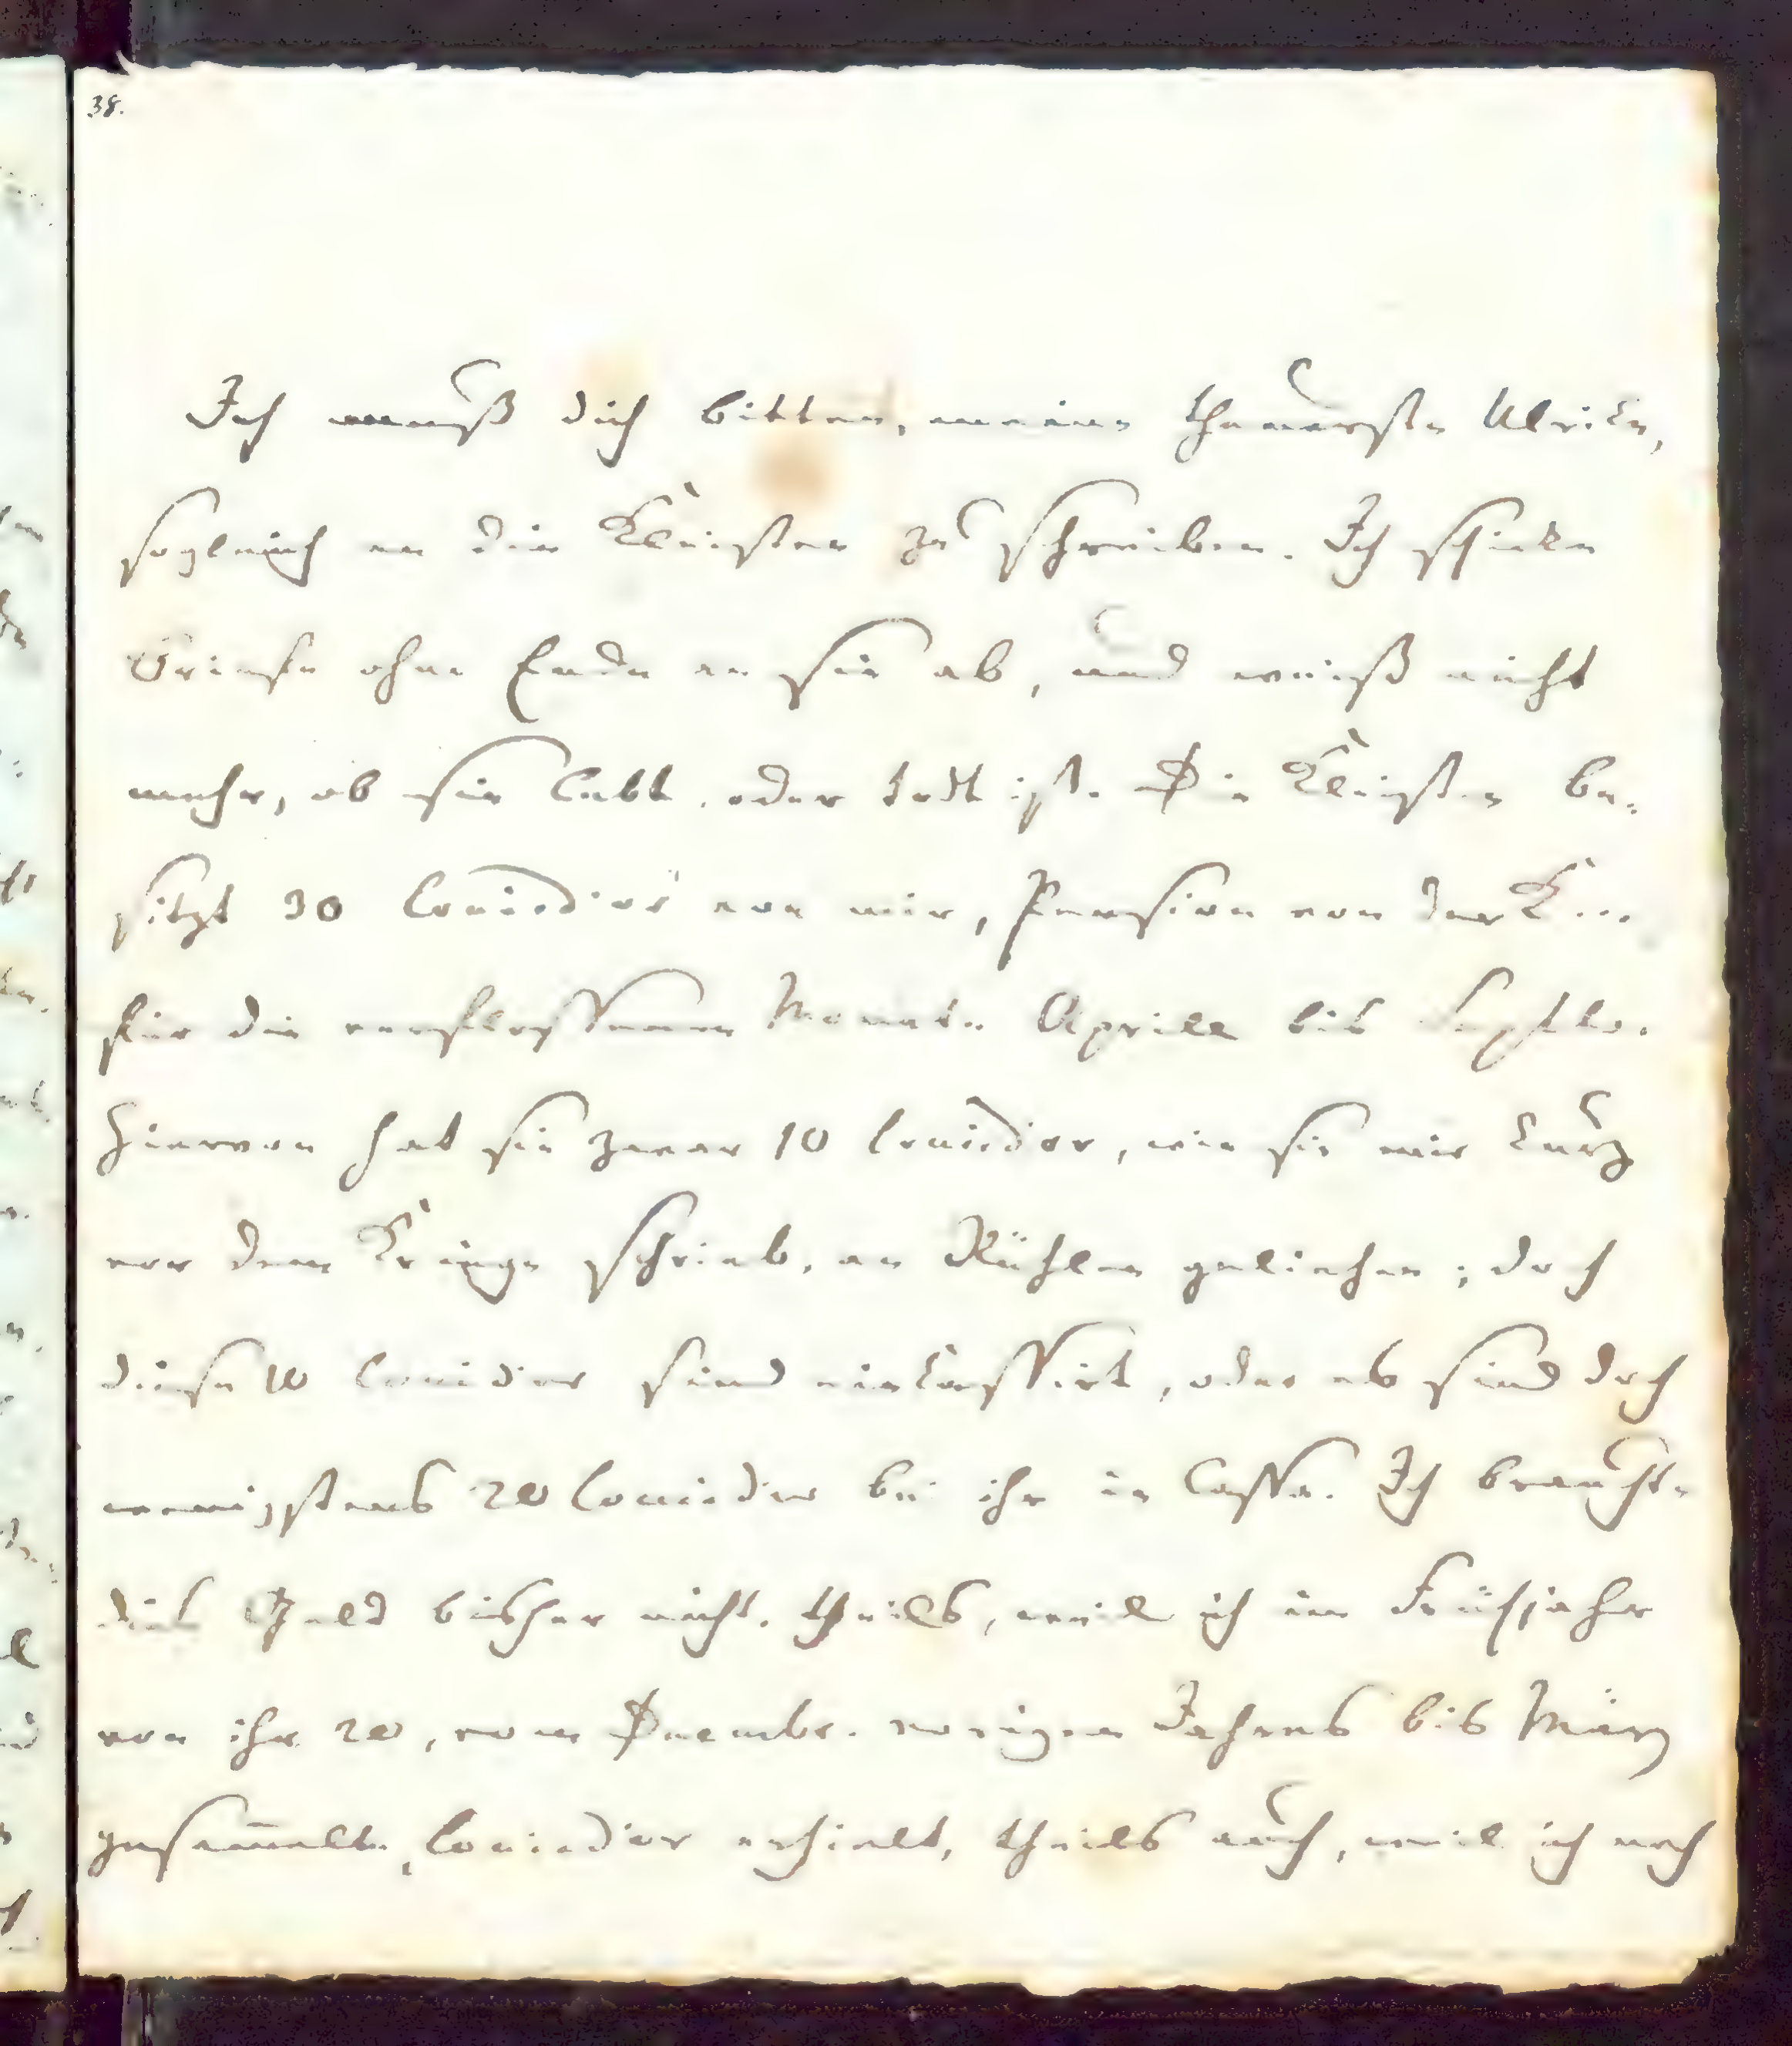 38.
Ich muß dich bitten, meine theuerste Ulrike,
sogleich an die Kleisten zu schreiben. Ich schicke
Briefe ohne Ende an sie ab, und weiß nicht
mehr, ob sie lebt, oder todt ist. Die Kleisten be-
sitzt 30 Louisd'or von mir, Pension von der K...
für die verflossenen Monate Aprill bis Septbr.
Hiervon hat sie zwar 10 Louisdor, wie sie mir kurz
vor dem Kriege schrieb, an Rühlen geliehen; doch
diese 10 Louisdor sind einkassirt, oder es sind doch
wenigstens 20 Louisdor bei ihr in Cassa. Ich brauchte
dies Geld bisher nicht, theils, weil ich im Frühjahr
von ihr 20, vom Decembr. vorigen Jahres bis März
gesammelte, Louisd'or erhielt, theils auch, weil ich noch